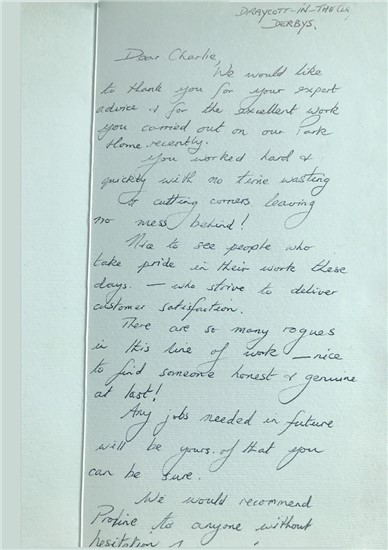 DRAYCOTT-IN-THE-CLAY
DERBYS.
Dear Charlie,
We would like
to thank you for your expert
advice & for the excellent work
you carried out on our Park
Home recently.
You worked hard &
quickly with no time wasting
or cutting corners leaving
no mess behind!
Nice to see people who
take pride in their work these
days. — who strive to deliver
customer satisfaction.
There are so many rogues
in this line of work — nice
to find someone honest & genuine
at last!
Any jobs needed in future
will be yours. of that you
can be sure.
We would recommend
to anyone without
hesitation